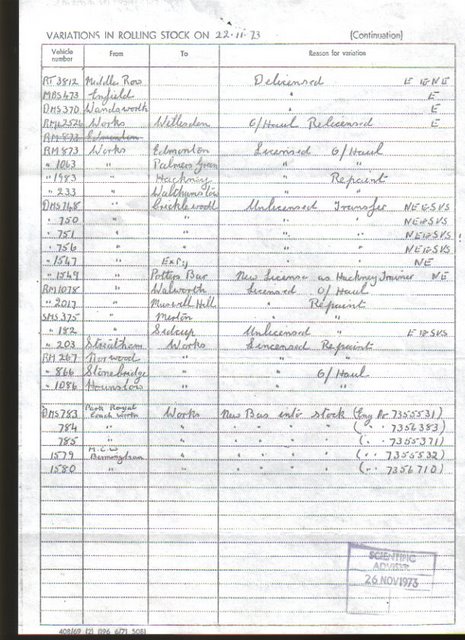 VARIATIONS IN ROLLING STOCK ON 22.11.73 (Continuation)
Vehicle number From To Reason for variation
RT 3812 Middle Row Delicensed E
MBS 473 Enfield " E
DMS 370 Wandsworth " E
RML 2526 Works Willesden O/Haul Relicensed E
RM 873 Edmonton
RM 873 Works Edmonton Licensed O/Haul
" 1063 " Palmers Green " "
" 1983 " Hackney " Repaint
" 233 " Walthamstow " "
DMS 748 " Cricklewood Unlicensed Transfer NE 12 SVS
" 750 " " " " NE 12 SVS
" 751 " " " " NE 12 SVS
" 756 " " " " NE 12 SVS
" 1547 " " " NE
" 1549 " Potters Bar New License as Hackney Trainer NE
RM 1078 " Walworth Licensed O/Haul
" 2017 " Muswell Hill " Repaint
SMS 375 " Merton " "
" 182 " Sidcup Unlicensed " E 12 SVS
" 203 Streatham Works Licensed Repaint
RM 267 Norwood " " "
" 866 Stonebridge " " O/Haul
" 1086 Hounslow " " "
DMS 783 Park Royal Coach works Works New Bus into stock (Eng No. 7355531)
784 " " " " " " (" " 7356383)
785 " " " " " " (" " 7355371)
1579 M.C.W Birmingham " " " " " (" " 7355532)
1580 " " " " " " (" " 7356710)
SCIENTIFIC
ADVISER
26 NOV 1973
408/69 (2) (196 6/71 508)